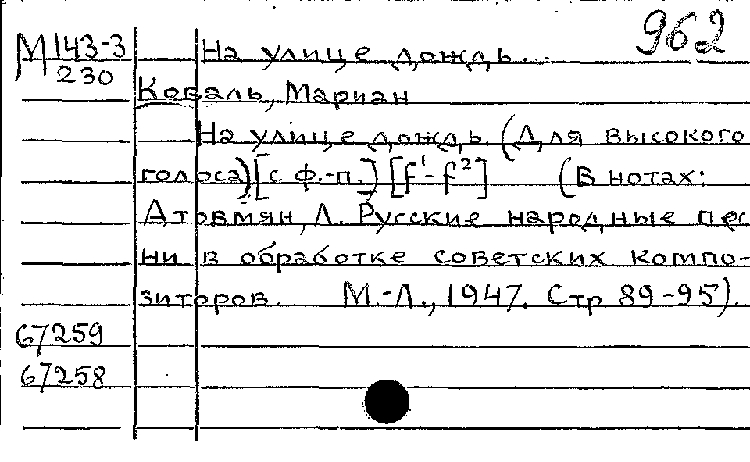 962
М 143-3
230
На улице дождь...
Коваль, Мариан
На улице дождь. (Для высокого
голоса) [с ф.-п.) [f¹-f²] (В нотах:
Атовмян, Л. Русские народные пес
ни в обработке советских компо-
зиторов. М.-Л., 1947. Стр 89-95).
67259
67258